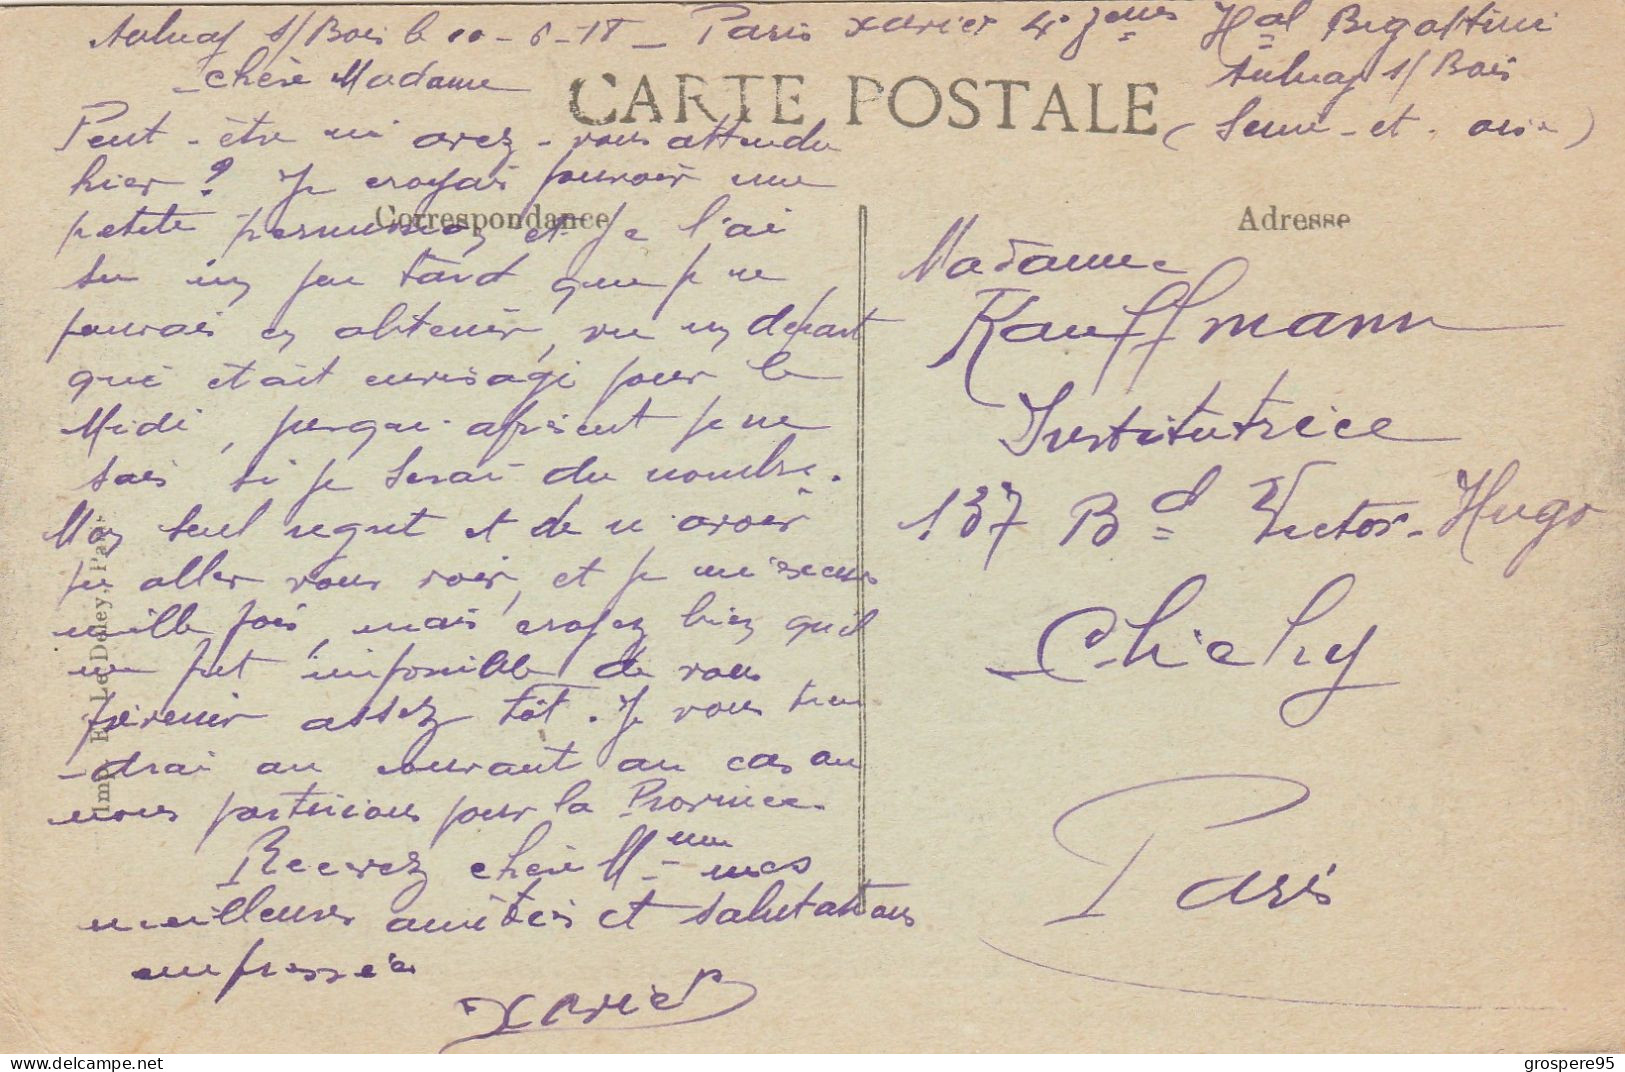 Aulnay s/Bois le 10-6-18 - Paris Xavier 4e Hal Bigottini
Chère Madame Aulnay s/Bois
CARTE POSTALE
(Seine-et-Oise)
Peut-être m'avez-vous attendu
hier ? Je croyais pouvoir une
petite permission, et je l'ai
su un peu tard que je ne
pouvais en obtenir, vu un départ
qui était envisagé pour le
Midi, jusqu'à présent je ne
sais si je serai du nombre.
Mon seul regret et de n'avoir
pu aller vous voir, et je m'excuse
mille fois, mais croyez bien qu'il
me fut impossible de vous
prévenir assez tôt. Je vous tien
-drai au courant au cas où
nous partirions pour la Province.
Recevez chère Mme mes
meilleures amitiés et salutations
empressées
Xavier
Correspondance
Imp. E. Le Deley, Paris
Adresse
Madame
Kauffmann
Institutrice
137 Bd Victor-Hugo
Clichy
Paris
grospere95